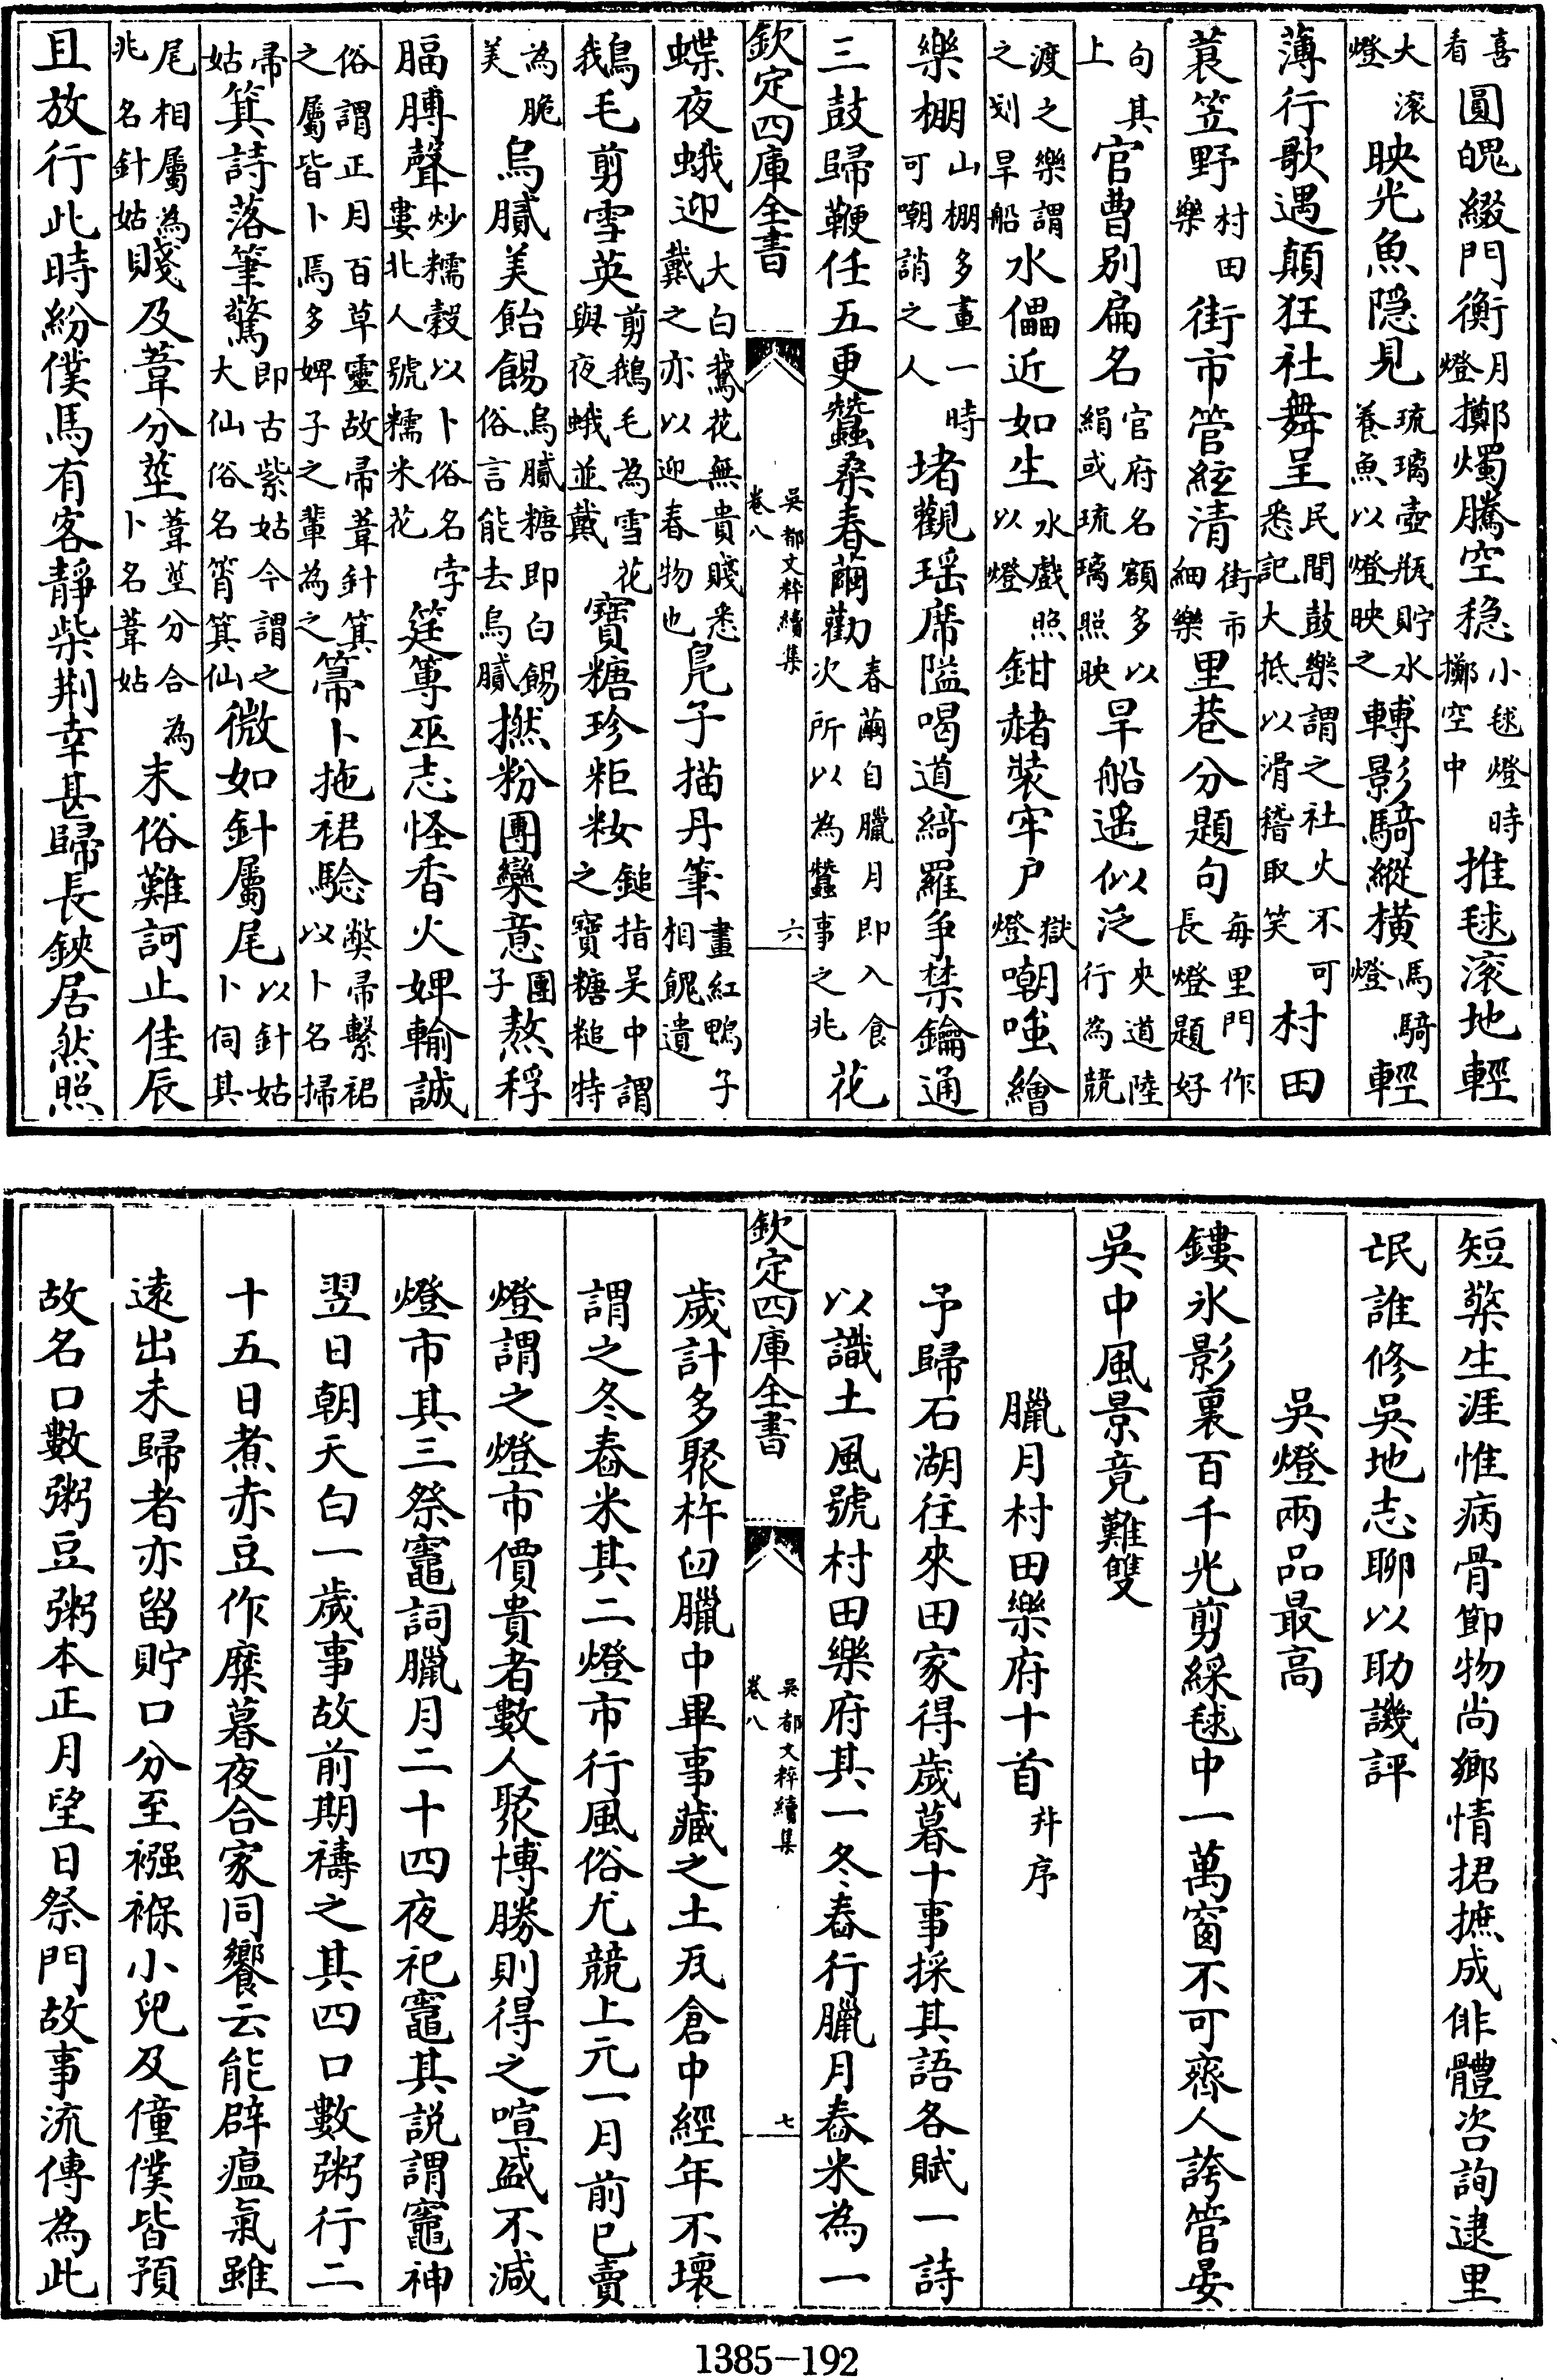 喜看圓魄綴門衡月燈擲燭騰空穩小毬燈時擲空中推毬滚地輕
大滚燈映光魚隠見琉璃壺瓶貯水養魚以燈映之轉影騎縱橫馬騎燈輕
薄行歌過顛狂社舞呈民間鼓樂謂之社火不可悉記大抵以滑稽取笑村田
蓑笠野村田樂街市管絃清街市細樂里巷分題句毎里門作長燈題好
句其上官曹别扁名官府名額多以絹或琉璃照映旱船遥似泛夾道陸行為競
渡之樂謂之划旱船水儡近如生水戲照以燈鉗赭裝牢户獄燈嘲嗤繪
樂棚山棚多畫一時可嘲誚之人堵觀瑶席隘喝道綺羅爭禁鑰通
三鼓歸鞭任五更蠶桑春繭勸春繭自臘月即入食次所以為蠶事之兆花
欽定四庫全書 吳都文粹續集 卷八 六
蝶夜蛾迎大白鵞花無貴賤悉戴之亦以迎春物也鳧子描丹筆畫紅鴨子相餽遺
鵝毛剪雪英剪鵝毛為雪花與夜蛾並戴寶糖珍粔籹鎚指吳中謂之寶糖䭔特
為脆美烏膩美飴餳烏膩糖即白餳俗言能去烏膩撚粉團欒意團子熬稃
膈膊聲炒糯穀以卜俗名孛婁北人號糯米花筳篿巫志怪香火婢輸誠
俗謂正月百草靈故帚葦針箕之屬皆卜焉多婢子之輩為之箒卜拖裙驗弊帚繫裙以卜名掃
帚姑箕詩落筆驚即古紫姑今謂之大仙俗名筲箕仙微如針屬尾以針姑卜伺其
尾相屬為兆名針姑賤及葦分莖葦莖分合為卜名葦姑末俗難訶止佳辰
且放行此時紛僕馬有客靜柴荆幸甚歸長鋏居然照
短檠生涯惟病骨節物尚鄉情捃摭成俳體咨詢逮里
氓誰修吳地志聊以助譏評
吳燈兩品最高
鏤氷影裏百千光剪綵毬中一萬窗不可齊人誇管晏
吳中風景竟難雙
臘月村田樂府十首并序
予歸石湖往來田家得歲暮十事採其語各賦一詩
以識土風號村田樂府其一冬舂行臘月舂米為一
欽定四庫全書 吳都文粹續集 卷八 七
歲計多聚杵臼臘中畢事藏之土瓦倉中經年不壞
謂之冬舂米其二燈市行風俗尤競上元一月前已賣
燈謂之燈市價貴者數人聚博勝則得之喧盛不減
燈市其三祭竈詞臘月二十四夜祀竈其説謂竈神
翌日朝天白一歲事故前期禱之其四口數粥行二
十五日煮赤豆作糜暮夜合家同饗云能辟瘟氣雖
遠出未歸者亦留貯口分至襁褓小兒及僮僕皆預
故名口數粥豆粥本正月望日祭門故事流傳為此
1385-192